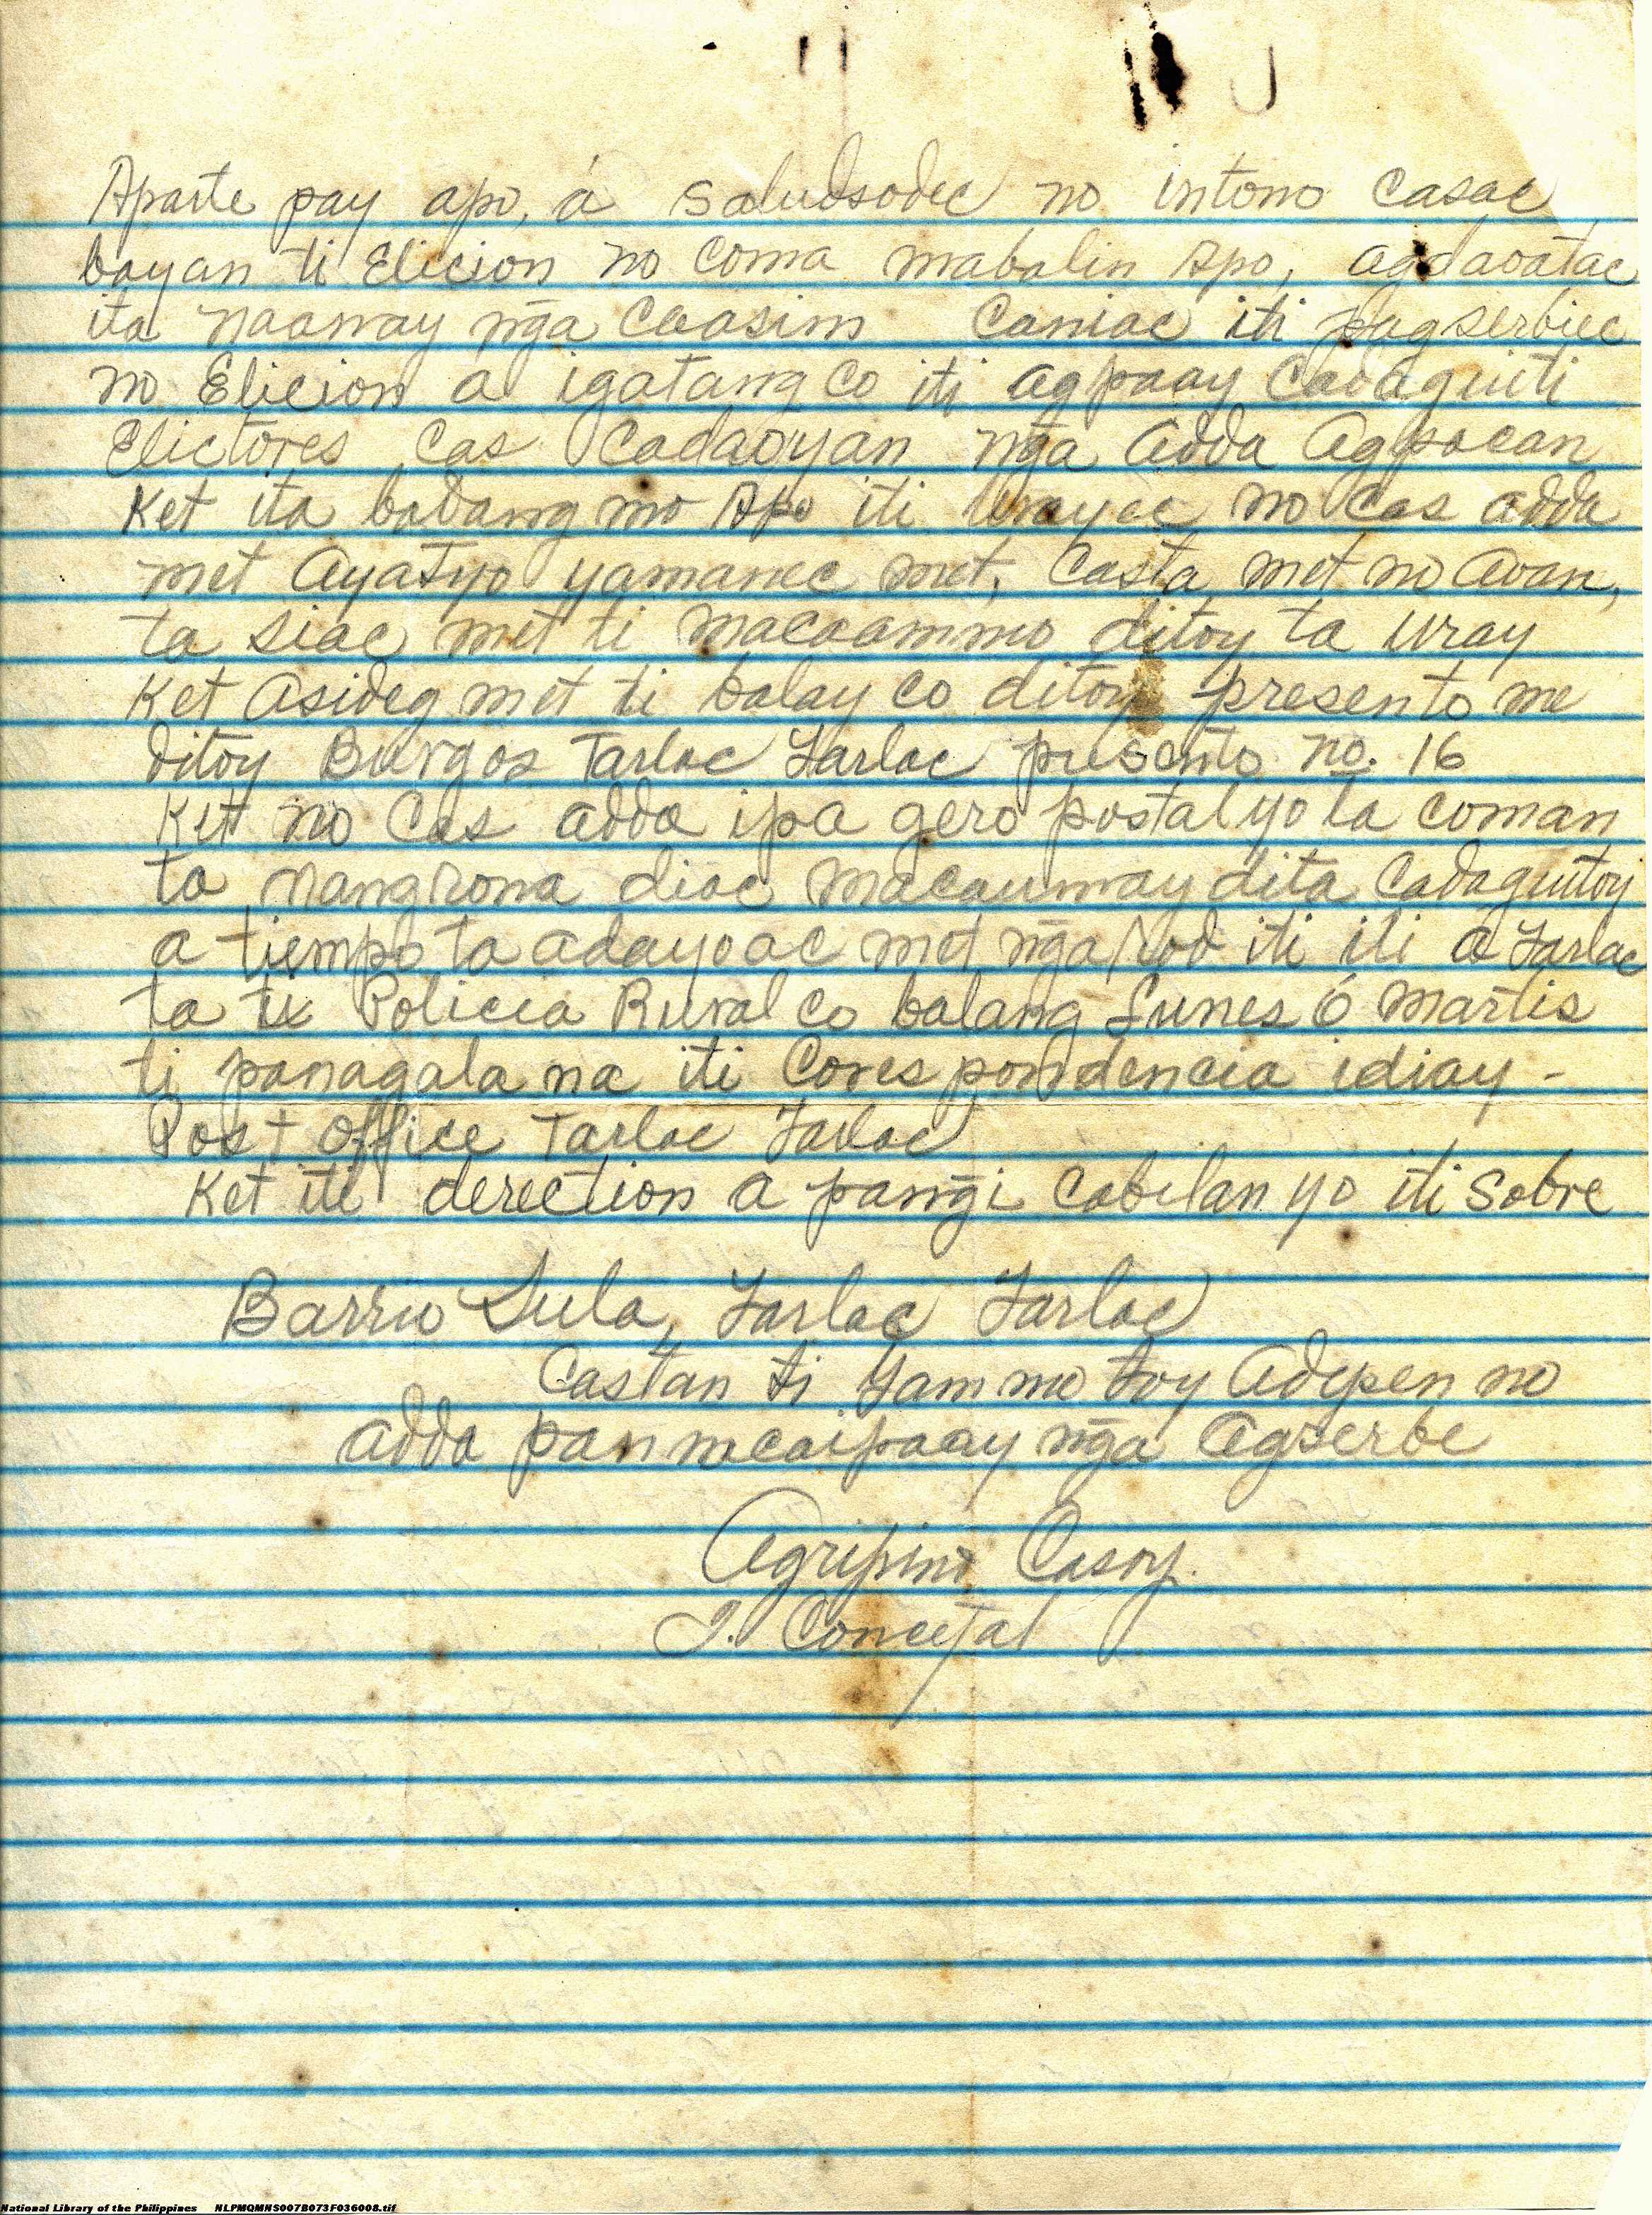 Aparte pay apo, á saludsodec no intono casac
bayan ti Elicion no coma mabalin Apo, agdaoatac
ita naanway nḡa Caasim Caniac iti pagserbiec
no Elicion a igatang co iti agpaay Cadaguiti
Elictores Cas Cadaoyan nḡa adda Agpacan
Ket ita badang mo Apo iti urayec no Cas adda
met Ayatyo yamanec met, Casta met no Avan,
ta siac met ti macaammo ditoy ta uray
Ket Asideg met ti balay co ditoy presento me
ditoy Burgos Tarlac Tarlac presento no. 16
Ket no Cas adda ipa gero postal yo la coman
ta nangrona diac macaumay dita Cadaguitoy
a tiempo ta adayoac met nḡa iti ili a Tarlac
ta ti Policia Rural co balang Lunes ó Martis
ti panagala na iti Corespondencia idiay -
Post Office Tarlac Tarlac
Ket iti derection a panḡi cabilan yo iti Sobre
Barrio Sula, Tarlac Tarlac
Castan ti Yammo toy Adipen no
adda panmacaipaay nḡa Agserbe
Agripino Casoy.
T. Concejal
National Library of the Philippines NLPMQMNS007B073F036008.tif